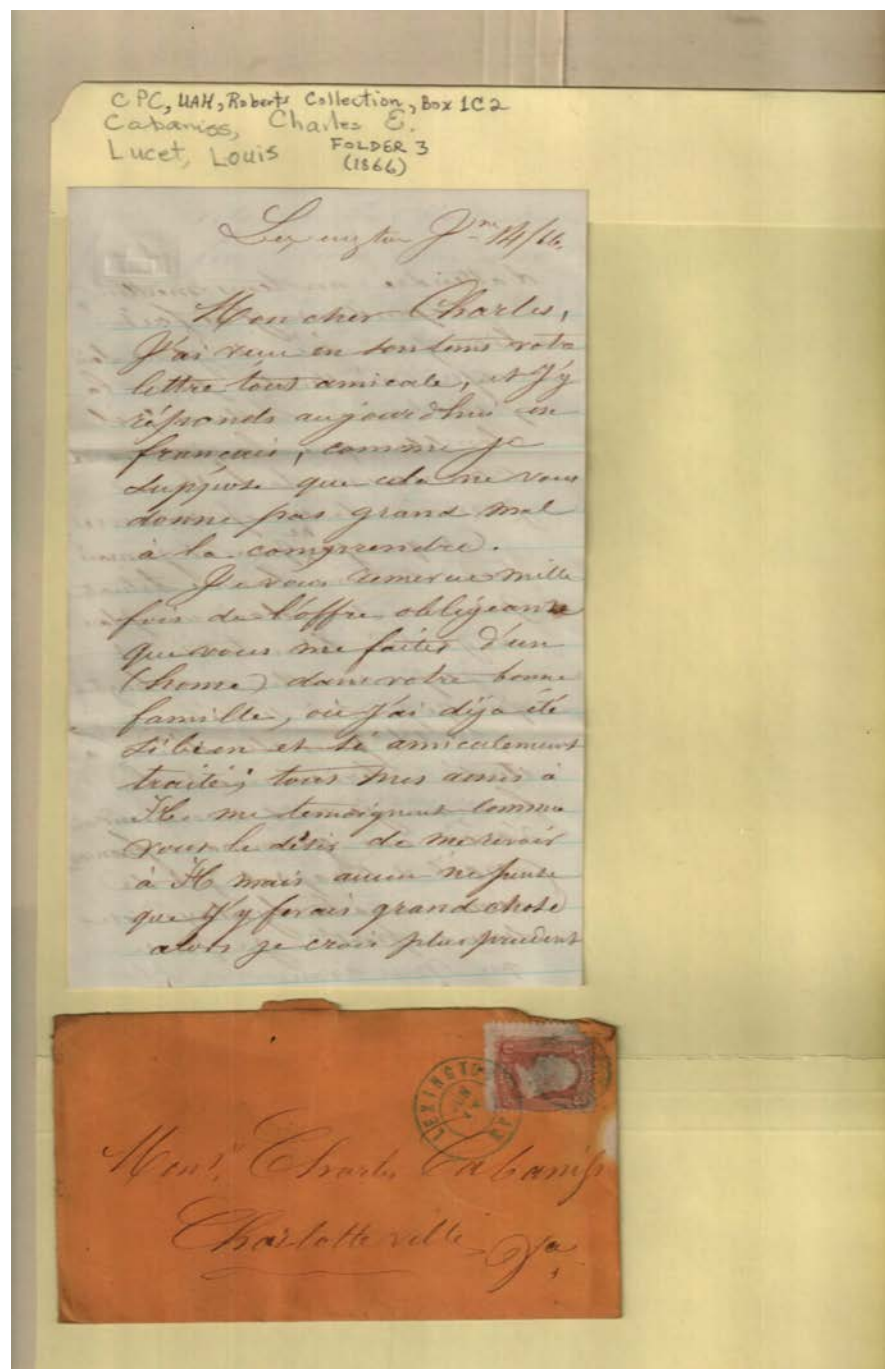 CPC, UAH, Roberts Collection, Box 1C2
Cabaniss, Charles E.
Lucet, Louis FOLDER 3
(1866)
Lexington Jne 14/66.
Mon cher Charles,
J'ai reçu en son tems votre
lettre tout amicale, et j'y
réponds aujourd'hui en
français, comme je
suppose que cela ne vous
donne pas grand mal
à la comprendre.
Je vous remercie mille
fois de l'offre obligeante
que vous me faites d'un
(home) dans votre bonne
famille, où j'ai déja été
si bien et si amicalement
traité; tous mes amis à
H. me temoignent comme
vous le désir de me revoir
à H mais aucun ne pense
que j'y ferais grand chose
alors je crois plus prudent
LEXINGTO
JUN
14
Monsr. Charles Cabaniss
Charlotteville
Va.